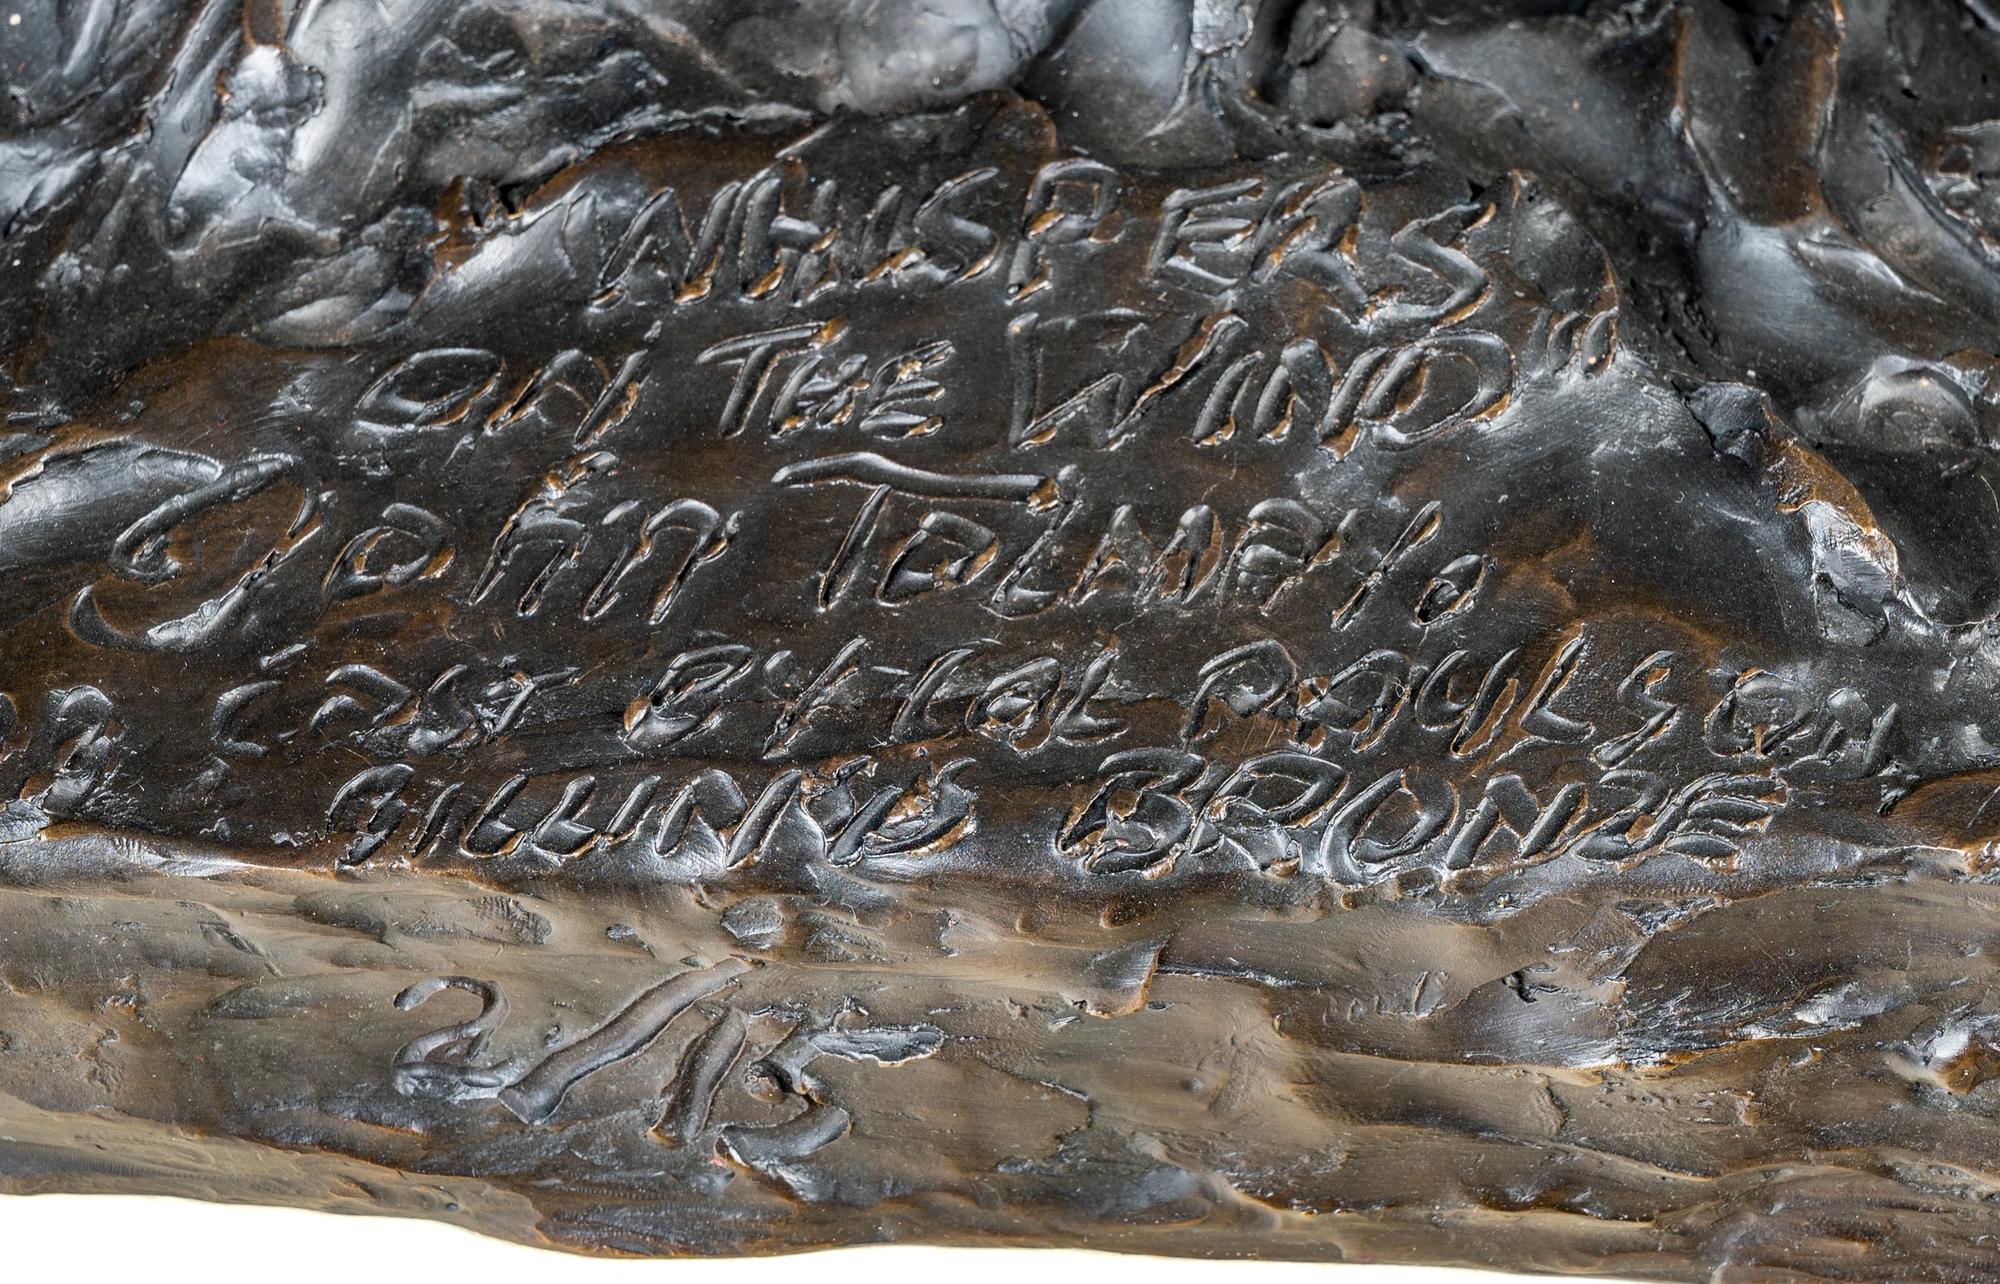 "WHISPERS
ON THE WIND"
John
CAST BY CAL PAULSON
BILLINGS BRONZE
2/15